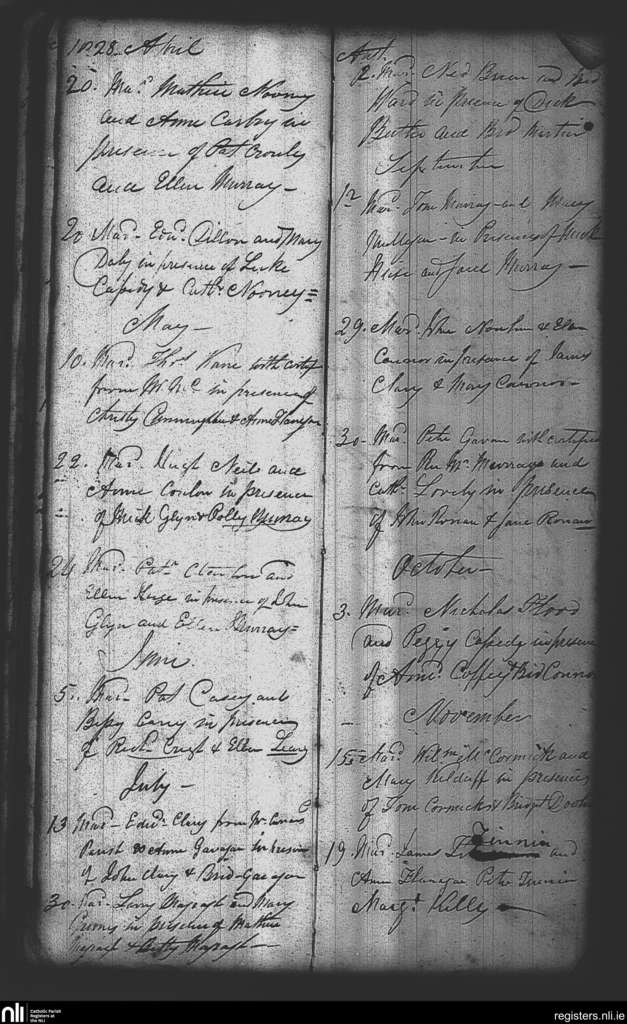 1828 April
20. Mar.d Mathew Nooney
and Anne Carby in
presence of Pat Crowly
and Ellen Murray -
20 Mar.d Edw.d Dillon and Mary
Daly in presence of Luke
Cassidy & Cath. Nooney =
May -
10. Mar.d Tho.s Kane with certif
from in presence of
Christy Cunningham & Anne Flanagan
22. Mar.d Hugh Neile and
Anne Conlon in presence
of Mick Glyn & Polly Murray
24 Mar.d Pat.k and
Ellen in presence of John
Glyn and Ellen Murray =
June.
5. Mar.d Pat Casey and
Bessy Carey in presence
of Rich.d & Ellen Leary
July -
13 Mar.d Edw.d Clary from Mr
Parish & Anne Gavagan in presence
of John Clary & Brid Gavagan
30. Mar.d Larry and Mary
in presence of Mathew
& Betty
Aust.
2. Mar.d Ned Brien and Brid
Ward in presence of Dick
Butler and Brid Martin
September
12 Mar.d Tom Murray and Mary
Mulligan in Presence of Mick
and Murray -
29. Mar.d John & Ellen
Connor in presence of James
Clary & Mary Connor -
30 - Mar.d Peter Gavan with certificate
from Rev Mr. and
Cath. Lovely in presence
of John Ronan & Jane Ronan
October -
3. Mar.d Nicholas Flood
and Peggy Cassedy in presence
of And.w Coffey & Brid Connor
November
15 Mar.d Will.m McCormick and
Mary Kilduff in presence
of Tom Cormick & Bridget
19. Mar.d James Finnin and
Anne Flanagan Peter Finnin
Marg.t Killy -
nli
Catholic Parish
Registers at
the NLI
registers.nli.ie